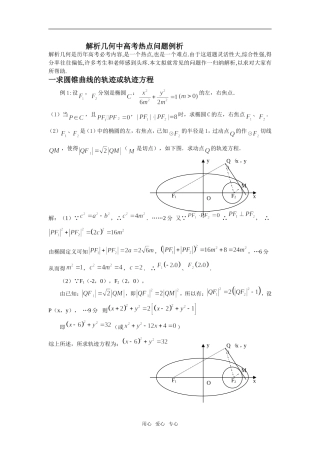 解析几何中高考热点问题例析
解析几何是历年高考必考内容,是一个热点,也是一个难点.由于这道题灵活性大,综合性强,得
分率往往偏低,许多考生和老师感到头疼.本文拟就常见的问题作一归纳解析,以求对大家有
所帮助.
一求圆锥曲线的轨迹或轨迹方程
例1:设F₁、F₂分别是椭圆C:x²/6m²+y²/2m²=1(m>0)的左、右焦点.
(1)当P∈C,且|PF₁||PF₂|=8时,求椭圆C的左、右焦点.
(2)F₁、F₂是(1)中的椭圆的左、右焦点,已知⊙F₂的半径是1,过动点Q的作切线
QM,使得|QF₁|=√2|QM|(M是切点),如下图.求动点Q的轨迹方程.
y Q(x,y)
M
F₁ O F₂ x
解:(1)∵c²=a²-b²,∴c²=4m². ……2分 又∵
∴|PF₁|²+|PF₂|²=(2c)²=16m²
由椭圆定义可知|PF₁|+|PF₂|=2a=2√6m,(|PF₁|+|PF₂|)²=16m²+8=24m², …6分
从而得m²=1,c²=4m²=4,
(2)∵F₁(-2,0),F₂(2,0),
由已知:|QF₁|=√2|QM|,即|QF₁|²=2|QM|²,所以有:|QF₁|²=2(|QF₂|²-1),设
P(x,y), …9分 则(x+2)²+y²=2[(x-2)²+y²-1]
即(x-6)²+y²=32(或x²+y²-12x+4=0)
综上所述,所求轨迹方程为:(x-6)²+y²=32
y Q(x,y)
M
F₁ O F₂ x
用心 爱心 专心